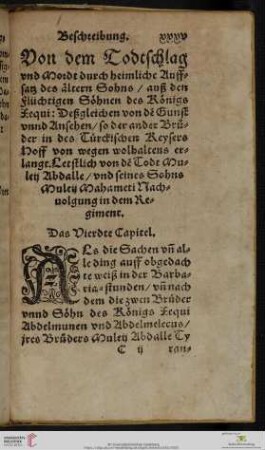 Beschreibung. xxxv
Von dem Todtschlag
vnd Mordt durch heimliche Auff-
satz des ältern Sohns / auß den
Flüchtigen Söhnen des Königs
Xequi: Deßgleichen von dē Gunst
vnnd Ansehen / so der ander Brů-
der in des Türckischen Keysers
Hoff von wegen wolhaltens er-
langt. Letstlich von dē Todt Mu-
ley Abdalle / vnd seines Sohns
Muley Mahameti Nach-
uolgung in dem Re-
giment.
Das Vierdte Capitel.
ALs die Sachen vñ al-
le ding auff obgedach
te weiß in der Barba-
ria-stunden / vñ nach
dem die zwen Brüder
vnnd Söhn des Königs Xequi
Abdelmunen vnd Abdelmelecus /
jres Brůders Muley Abdalle Ty
C ij ran-